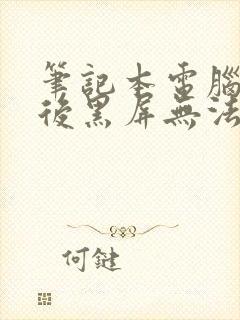 筆記本電腦
後黑屏無法
何鍵